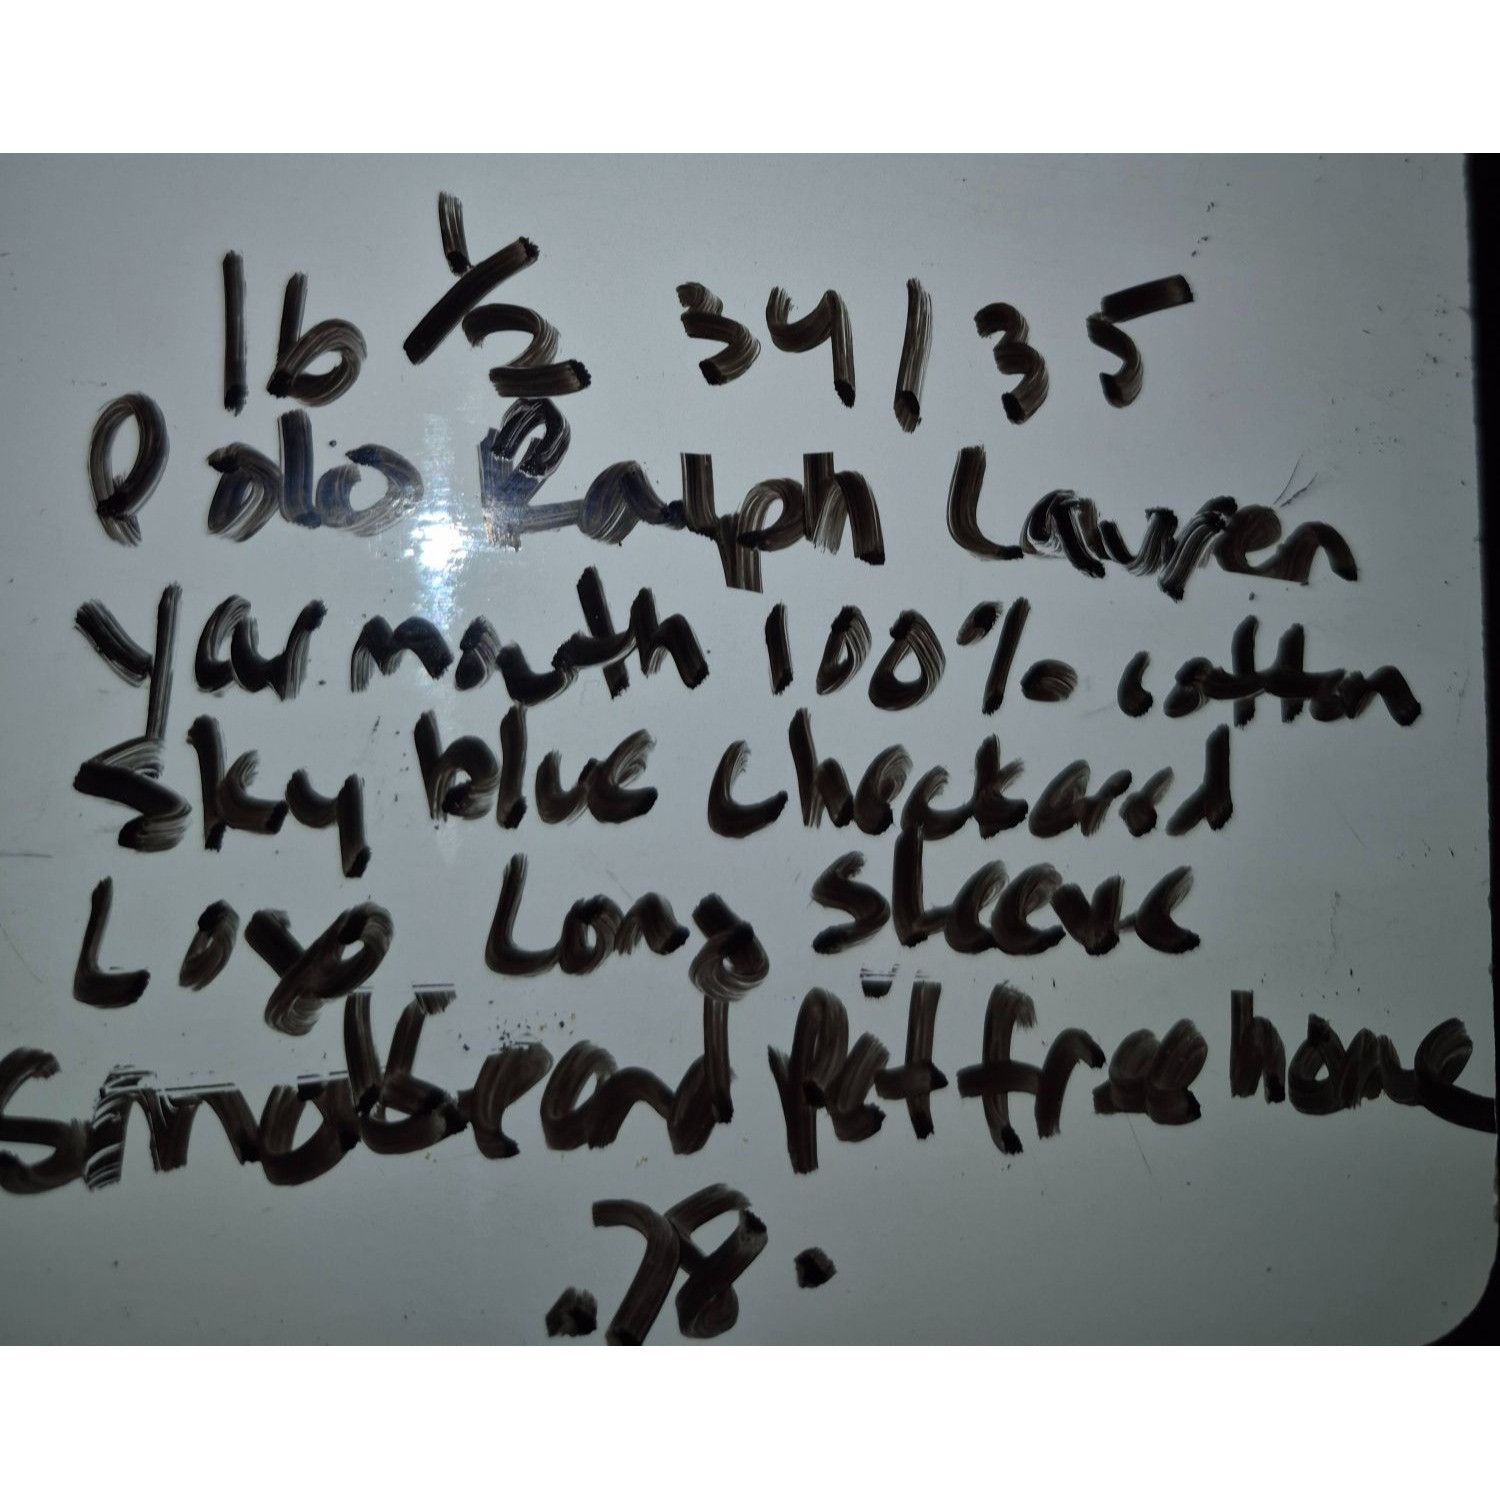 16 1/2 34/35
Polo Ralph Lauren
Yarmouth 100% cotton
Sky blue checkered
Logo Long sleeve
Smoke and Pet free home
.78.